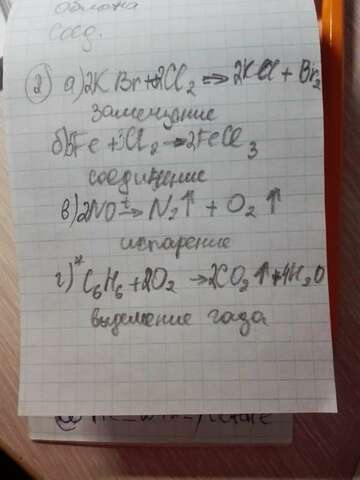 соед.
2 а) 2KBr + 2Cl₂ ⇒ 2KCl + Br₂
замещение
б) Fe + 3Cl₂ → 2FeCl₃
соединение
в) 2NO →ᵗ N₂↑ + O₂↑
испарение
г)* C₆H₆ + 2O₂ → 2CO₂↑ + H₂O
выделение газа